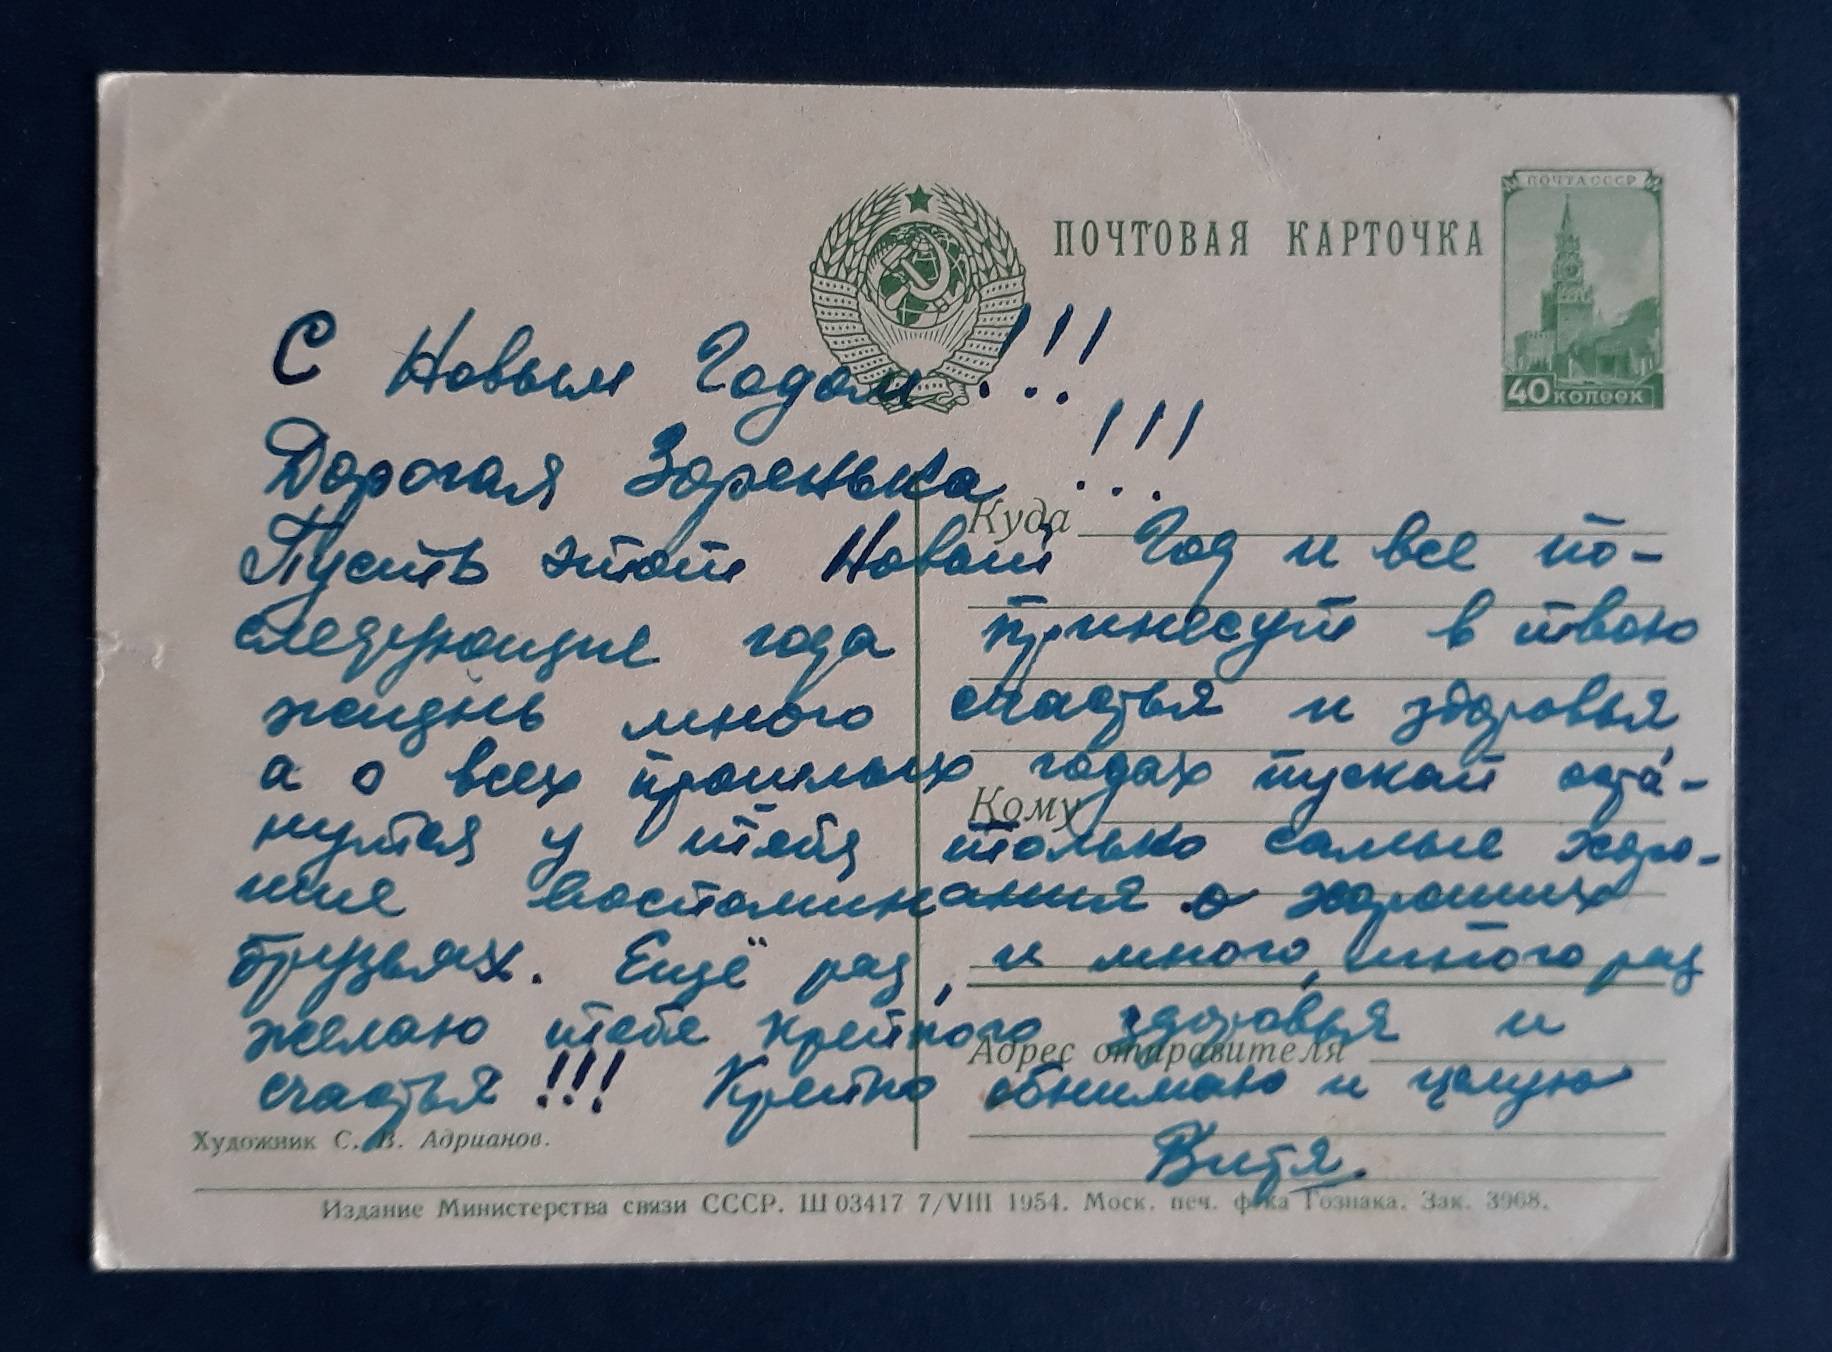 ПОЧТА СССР
ПОЧТОВАЯ КАРТОЧКА
40 КОПЕЕК
С Новым Годом!!!
Дорогая Заренька!!!
Куда
Пусть этот Новый Год и все по-
следующие года принесут в твою
жизнь много счастья и здоровья
а о всех прошлых годах пускай оста-
Кому
нутся у тебя только самые хоро-
шие воспоминания о хороших
друзьях. Ещё раз, и много, много раз
желаю тебе крепкого здоровья и
Адрес отправителя
счастья!!! Крепко обнимаю и целую
Витя.
Художник С. В. Адрианов.
Издание Министерства связи СССР. Ш 03417 7/VIII 1954. Моск. печ. ф-ка Гознака. Зак. 3968.